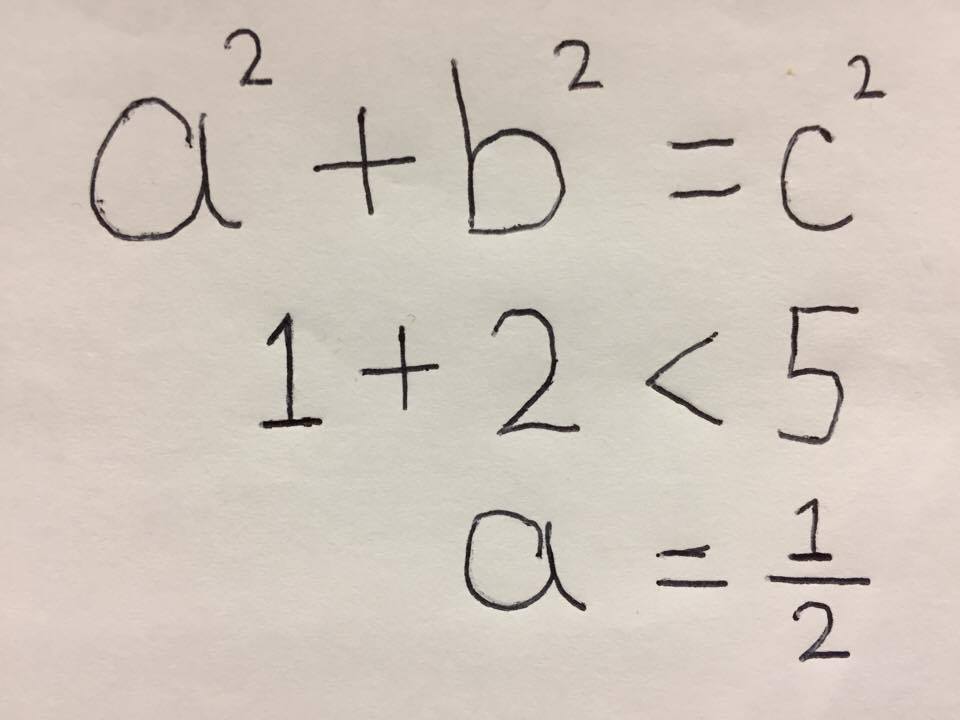 a² + b² = c²
1 + 2 < 5
a = 1/2